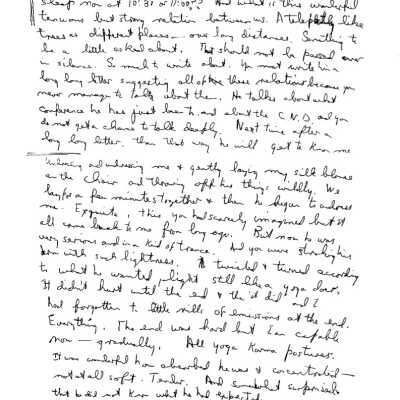 sleep now at 10:30 or 11:00? And what is this wonderful
tenuous but strong relation between us. A telepathy like
trees at different places — over long distances. Something to
be a little asked about. This should not be passed over
in silence. So much to write about. You must write him a
long long letter suggesting all of these relations because you
never manage to talk about them. He talks about what
conference he has just been to and about the C.N.D. and you
do not get a chance to talk deeply. Next time after a
long long letter. then that way he will get to know me
undressing me & gently laying my silk blouse
on the chair and throwing off his things wildly. We
lay for a few minutes together & then he began to
me. Exquisite, this you had scarcely imagined but it
all came back to me from long ago. But now he was
very serious and in a kind of trance. And you were stroking his
with such lightness. I twisted & turned according
to what he wanted, light still like a yoga
It didn't hurt until the end & and I
had forgotten to little rills of emissions at the end.
Everything. The end was hard but I am capable
now — gradually. All yoga Karma postures.
It was wonderful how absorbed he was & concentrated —
not at all soft. Tender. And somewhat surprised
that he did not know what he had expected